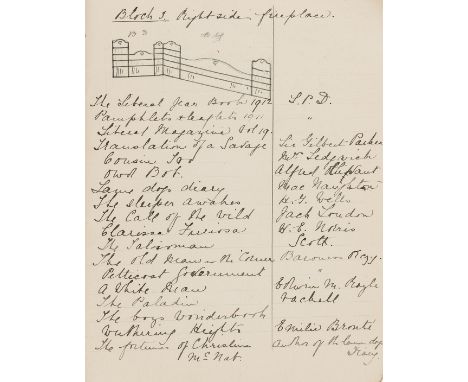 Block 3. Right side fireplace.
B 3 B 4
The Liberal Year Book 1912 L.P.D.
Pamphlets & leaflets 1911 "
Liberal Magazine Vol 19.
Translation of a Savage Sir Gilbert Parker
Cousin Mrs Sedgwick
Owd Bob. Alfred Olivant
Lame dogs diary Mac Naughton
The sleeper awakes H. G. Wells
The Call of the Wild Jack London
Clarissa Furiosa W. E. Norris
The Talisman Scott.
The Old Man in the Corner Baroness Orczy.
Petticoat Government "
A White Man Edwin M. Royle
The Paladin Vachell
The boys wonderbook
Wuthering Hights Emilie Bronté
The fortunes of Christina author of the lame dog
McNab. Diary.